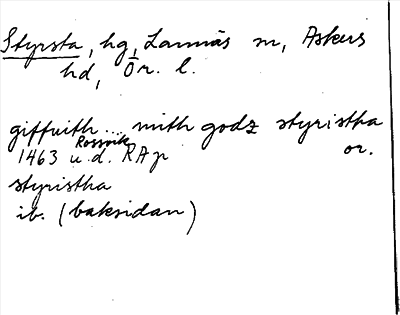 Styrsta, hg, Lannäs sn, Askers
hd, Ör. l.
giffuith ... mith godz styristha
1463 u.d. RAp or.
styristha
ib. (baksidan)